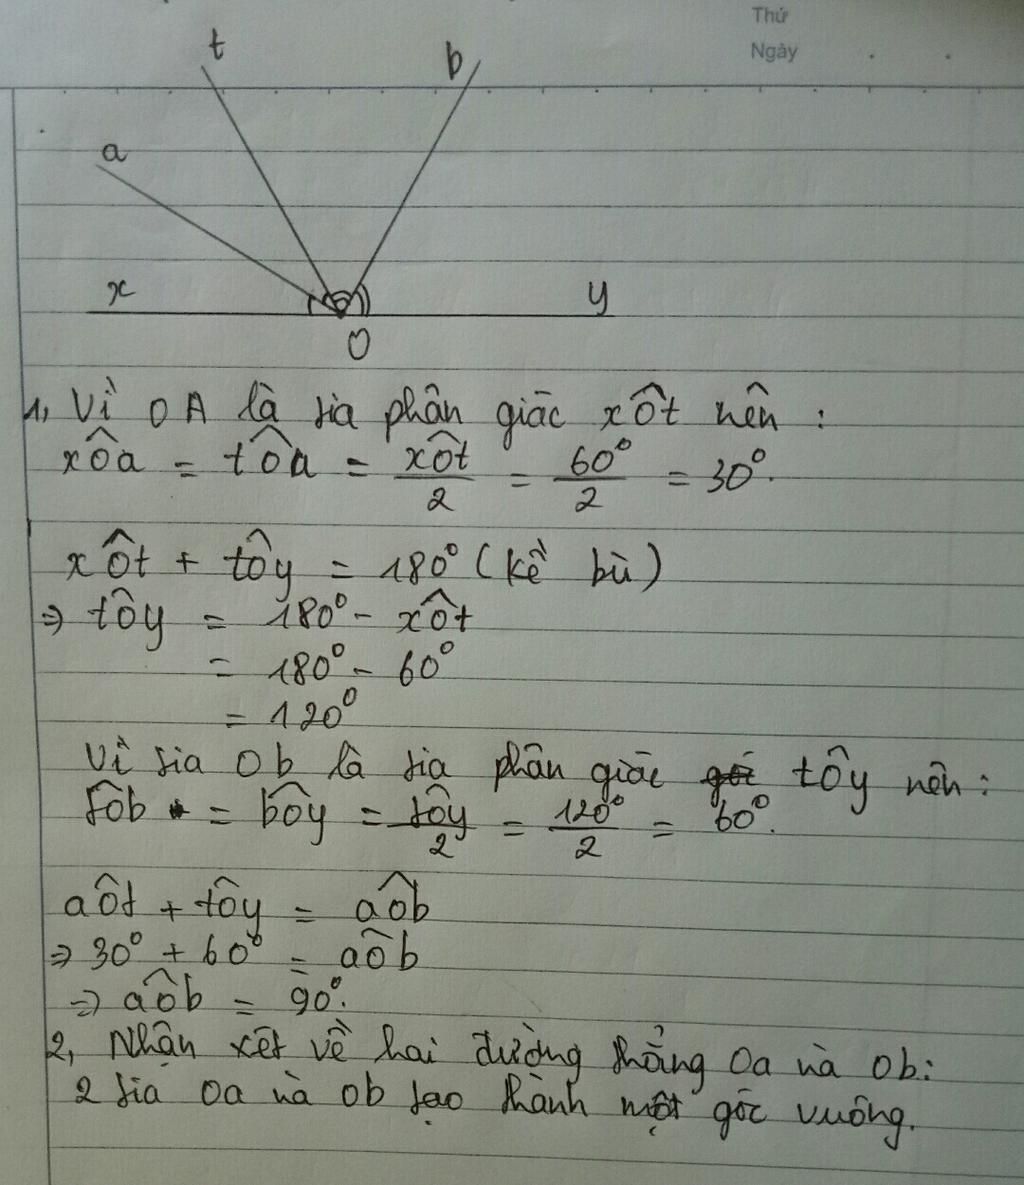 Thứ
Ngày
t
b
a
x
y
O
1, Vì OA là tia phân giác xÔt nên :
xÔa = tÔa = xÔt/2 = 60°/2 = 30°.
xÔt + tÔy = 180° (kề bù)
⇒ tÔy = 180° - xÔt
= 180° - 60°
= 120°
Vì tia Ob là tia phân giác tÔy nên :
tÔb = bÔy = tÔy/2 = 120°/2 = 60°.
aÔt + tÔy = aÔb
⇒ 30° + 60° = aÔb
⇒ aÔb = 90°.
2, Nhận xét về hai đường thẳng Oa và Ob :
2 tia Oa và Ob tạo thành một góc vuông.